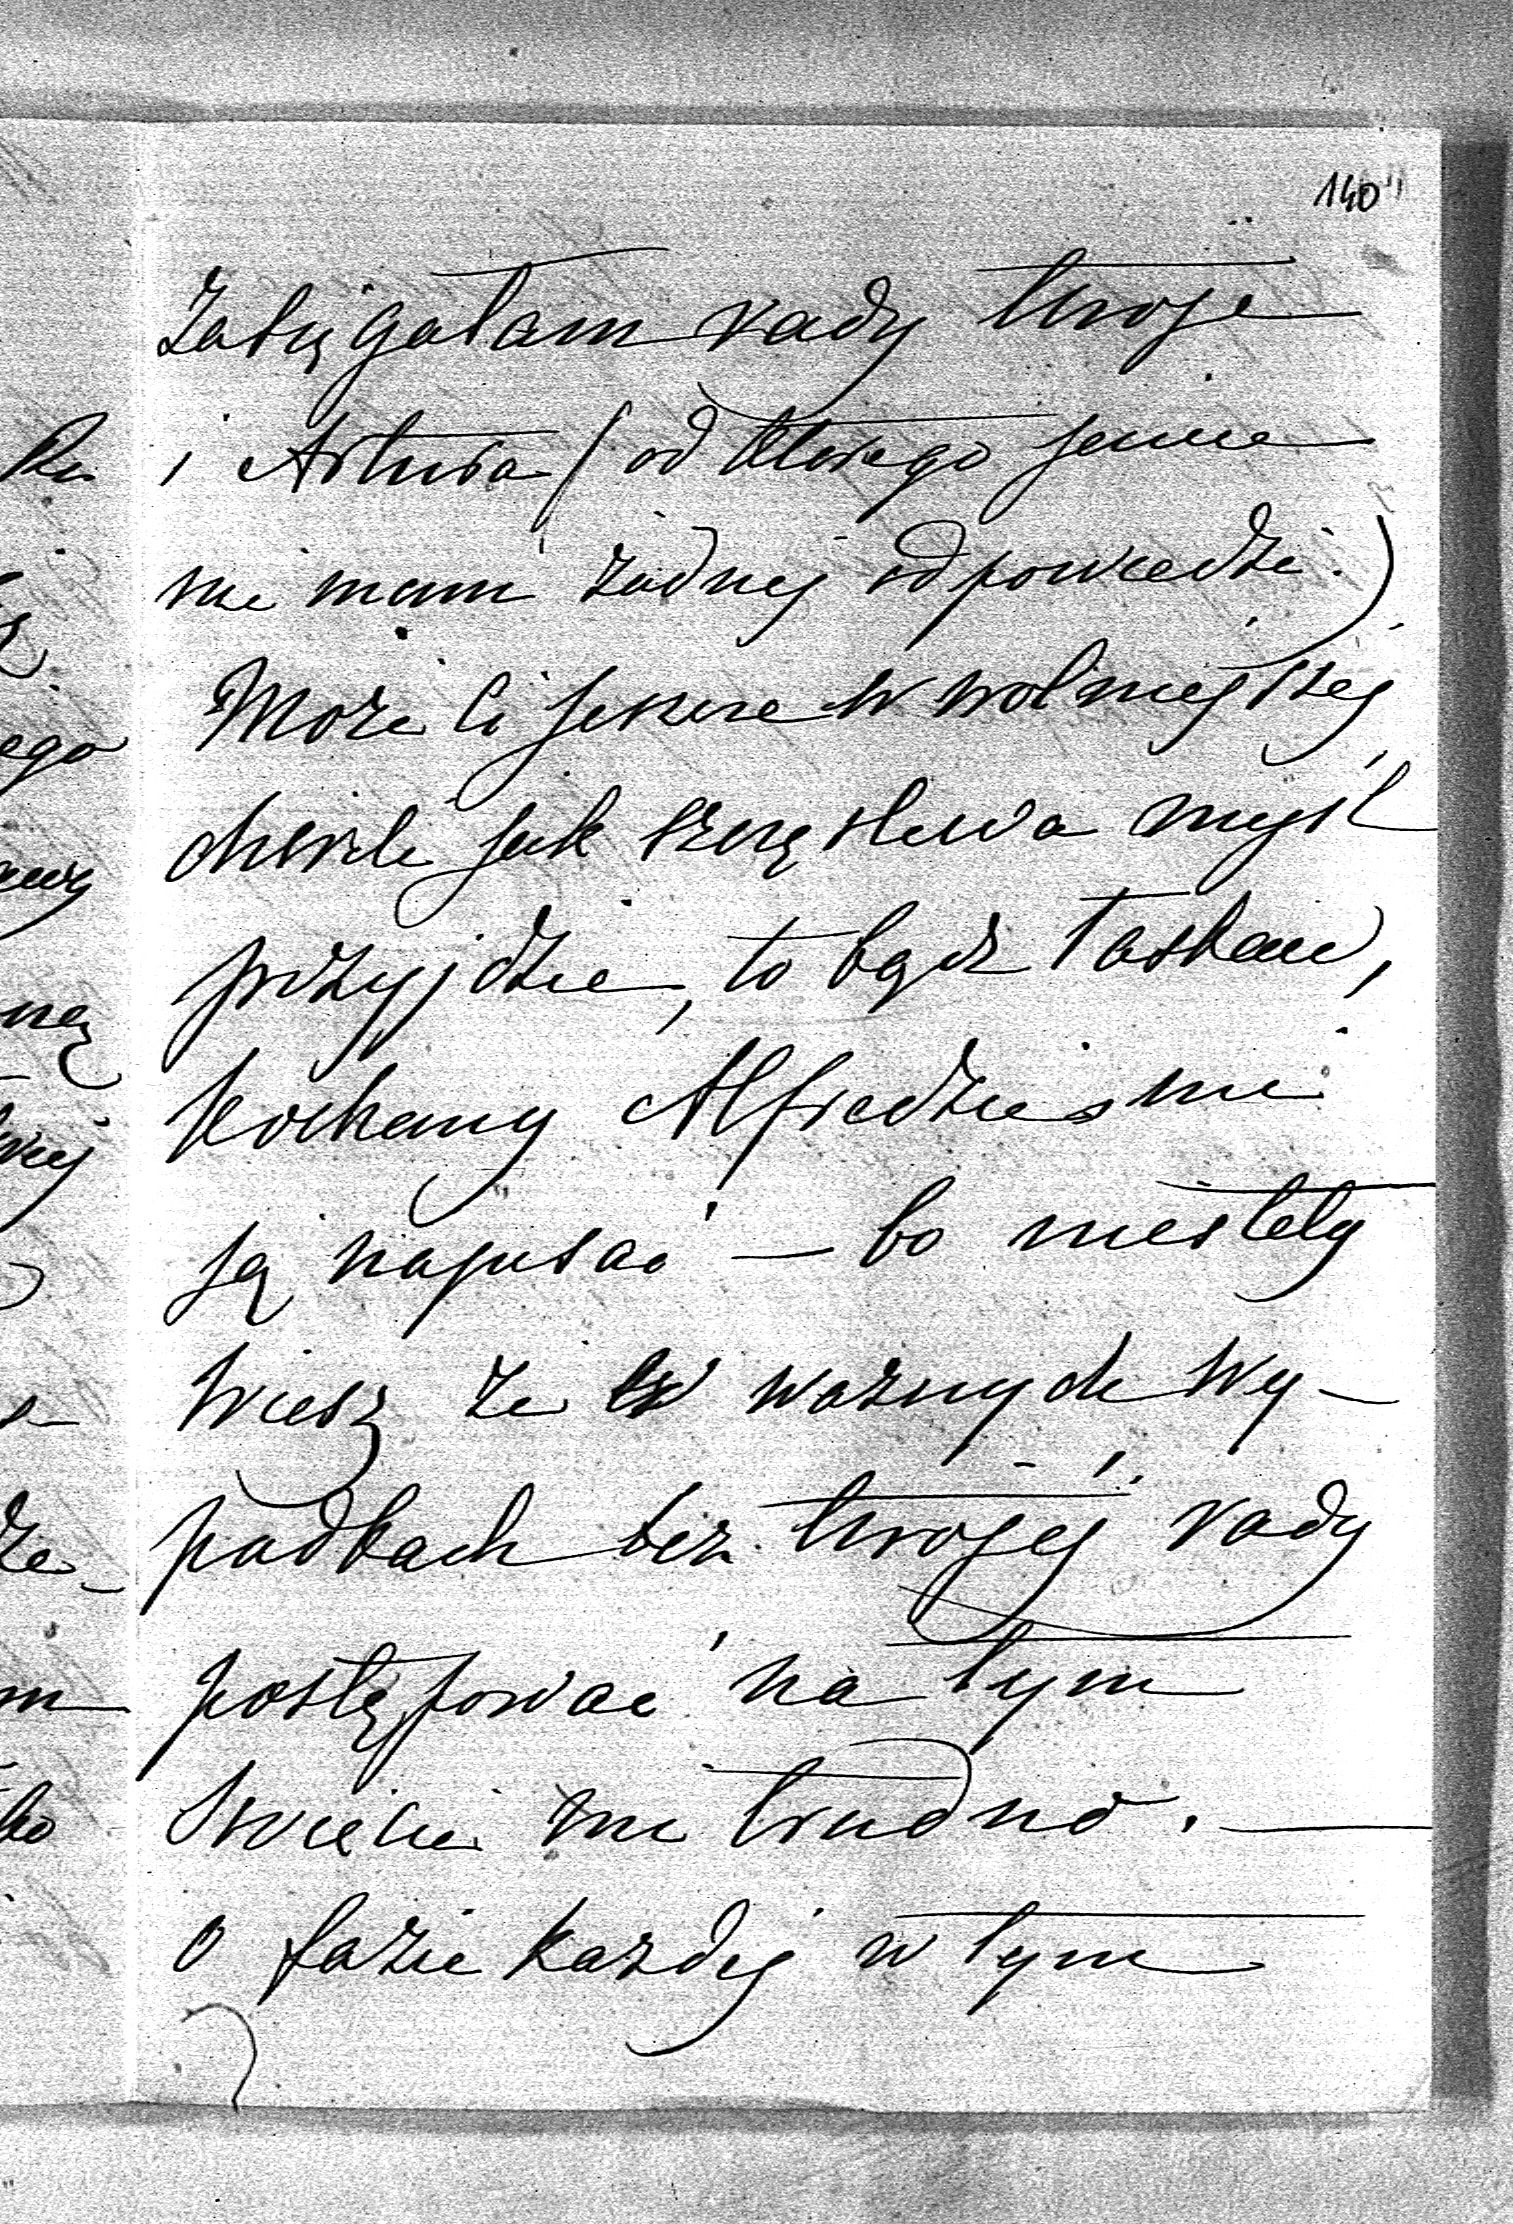 140
Zasięgałam rady twoje
i Artura (od którego jeszcze
nie mam żadnej odpowiedzi.)
Może Ci jeszcze w wolniejszej
chwili jak szczęśliwa myśl
przyjdzie, to bądź łaskaw,
kochany Alfredzie mi
ją napisać — bo niestety
wiesz że w ważnych wy-
padkach bez twojej rady
postępować na tym
świecie mi trudno. —
O fazie każdej w tym